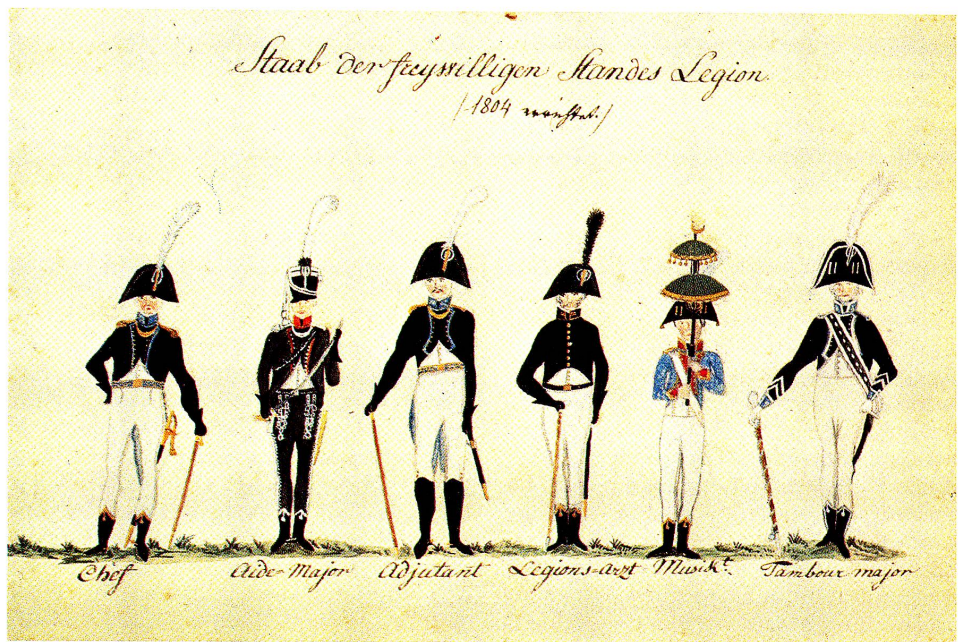 Staab der freywilligen Standes Legion.
/ 1804 errichtet. /
Chef Aide-Major Adjutant Legions=Arzt Musikt. Tambour major